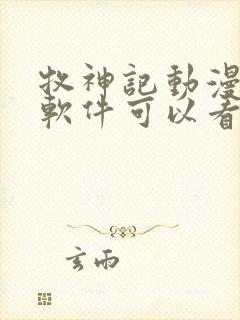 牧神記動漫
軟件可以看
玄雨